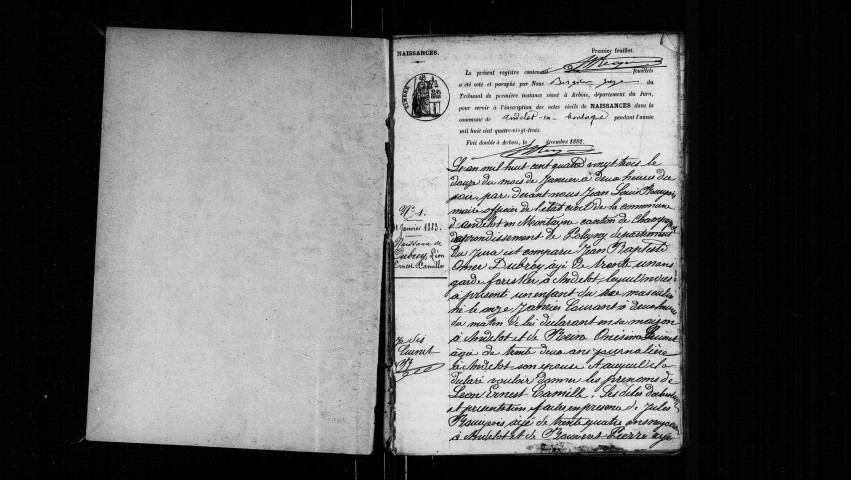 NAISSANCES.
Premier feuillet.
Le présent registre contenant feuillets
a été coté et paraphé par Nous juge du
Tribunal de première instance séant à Arbois, département du Jura,
pour servir à l'inscription des actes civils de NAISSANCES dans la
commune de Andelot-en-Montagne pendant l'année
mil huit cent quatre-vingt-trois.
Fait double à Arbois, le décembre 1882.
TIMBRE
N° 1.
Janvier 1883.
Naissance de
Dubrey, Léon
Ernest Camille
L'an mil huit cent quatre vingt trois le
douze du mois de Janvier à deux heures du
soir par devant nous Jean Louis
maire officier de l'état civil de la commune
d'Andelot en Montagne canton de Champagnole
arrondissement de Poligny département
du Jura est comparu Jean Baptiste
Omer Dubrey âgé de trente un ans
garde forestier à Andelot lequel nous
a présenté un enfant du sexe masculin
né le onze Janvier courant à heures
du matin de lui déclarant en sa maison
à Andelot et de Rosine
âgée de trente deux ans journalière
à Andelot son épouse et auquel il a
déclaré vouloir donner les prénoms de
Léon Ernest Camille. Les dites déclaration
et présentation faites en présence de Jules
âgé de trente quatre ans
à Andelot et de Pierre âgé